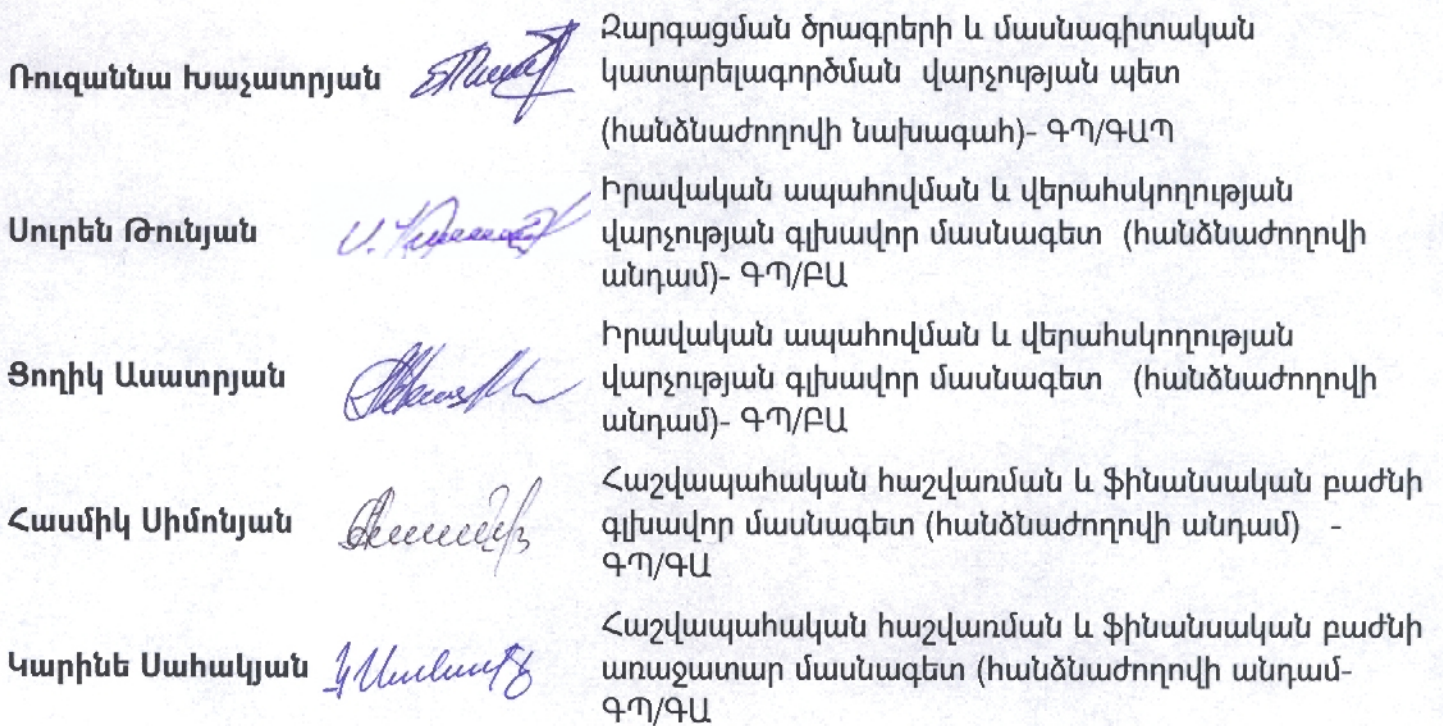 Ռուզաննա Խաչատրյան
Զարգացման ծրագրերի և մասնագիտական
կատարելագործման վարչության պետ
(հանձնաժողովի նախագահ)- ԳՊ/ԳԱՊ
Սուրեն Թունյան
Իրավական ապահովման և վերահսկողության
վարչության գլխավոր մասնագետ (հանձնաժողովի
անդամ)- ԳՊ/ԲԱ
Ցողիկ Ասատրյան
Իրավական ապահովման և վերահսկողության
վարչության գլխավոր մասնագետ (հանձնաժողովի
անդամ)- ԳՊ/ԲԱ
Հասմիկ Սիմոնյան
Հաշվապահական հաշվառման և ֆինանսական բաժնի
գլխավոր մասնագետ (հանձնաժողովի անդամ) -
ԳՊ/ԳԱ
Կարինե Սահակյան
Հաշվապահական հաշվառման և ֆինանսական բաժնի
առաջատար մասնագետ (հանձնաժողովի անդամ-
ԳՊ/ԳԱ